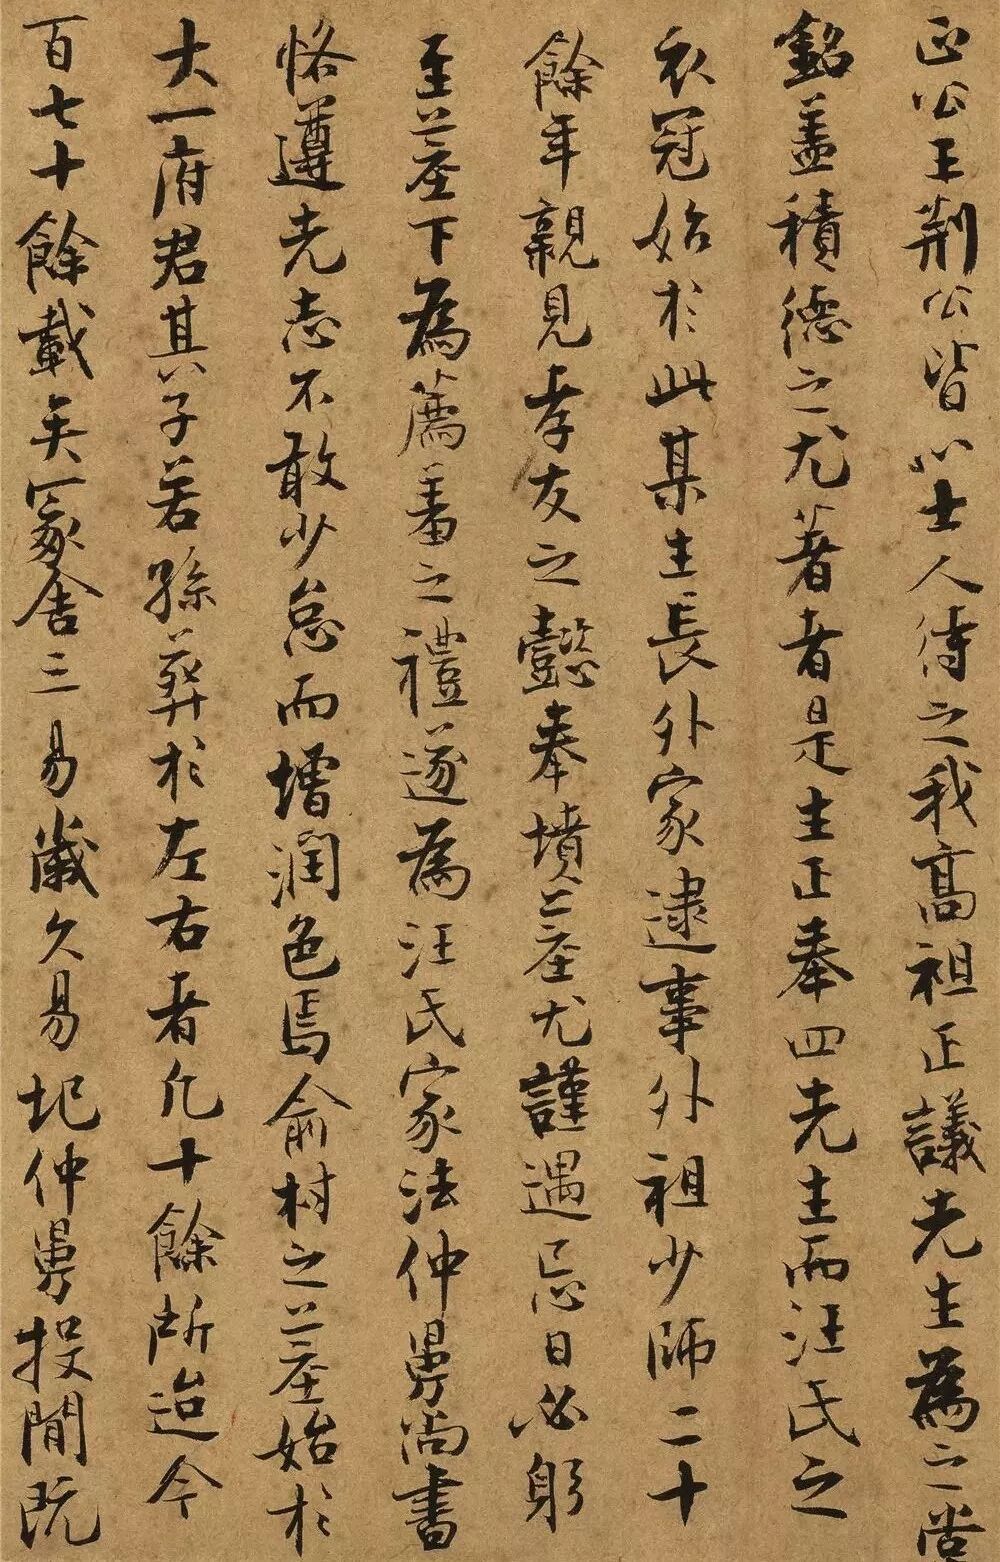 正公王荊公皆以士人待之我高祖正議先生為之
銘蓋積德之尤著者是生正奉四先生而汪氏之
衣冠始於此某生長外家逮事外祖少師二十
餘年親見孝友之懿奉墳墓尤謹遇忌日必躬
至墓下為薦羞之禮遂為汪氏家法仲舅尚書
恪遵先志不敢少怠而增潤色焉俞村之墓始於
大一府君其子若孫葬於左右者凡十餘所迨今
百七十餘載矣冢舍三易歲久易圮仲舅投閒既